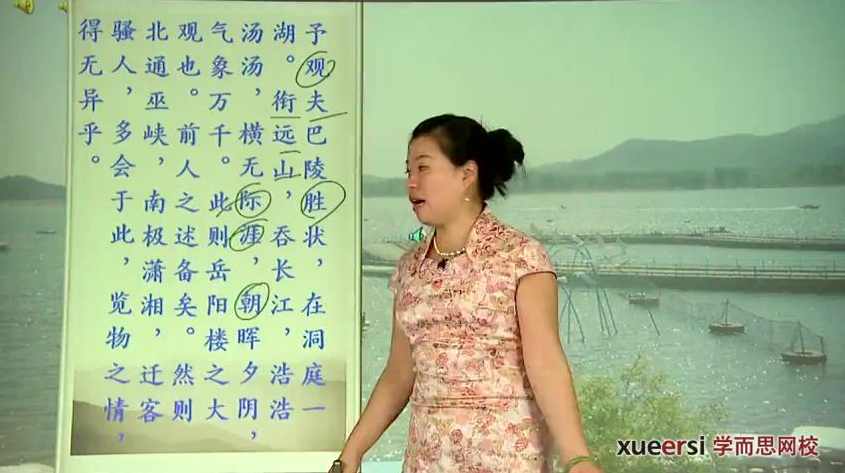 予观夫巴陵胜状，在洞庭一
湖。衔远山，吞长江，浩浩
汤汤，横无际涯，朝晖夕阴，
气象万千。此则岳阳楼之大
观也。前人之述备矣。然则
北通巫峡，南极潇湘，迁客
骚人，多会于此，览物之情，
得无异乎。
xueersi 学而思网校